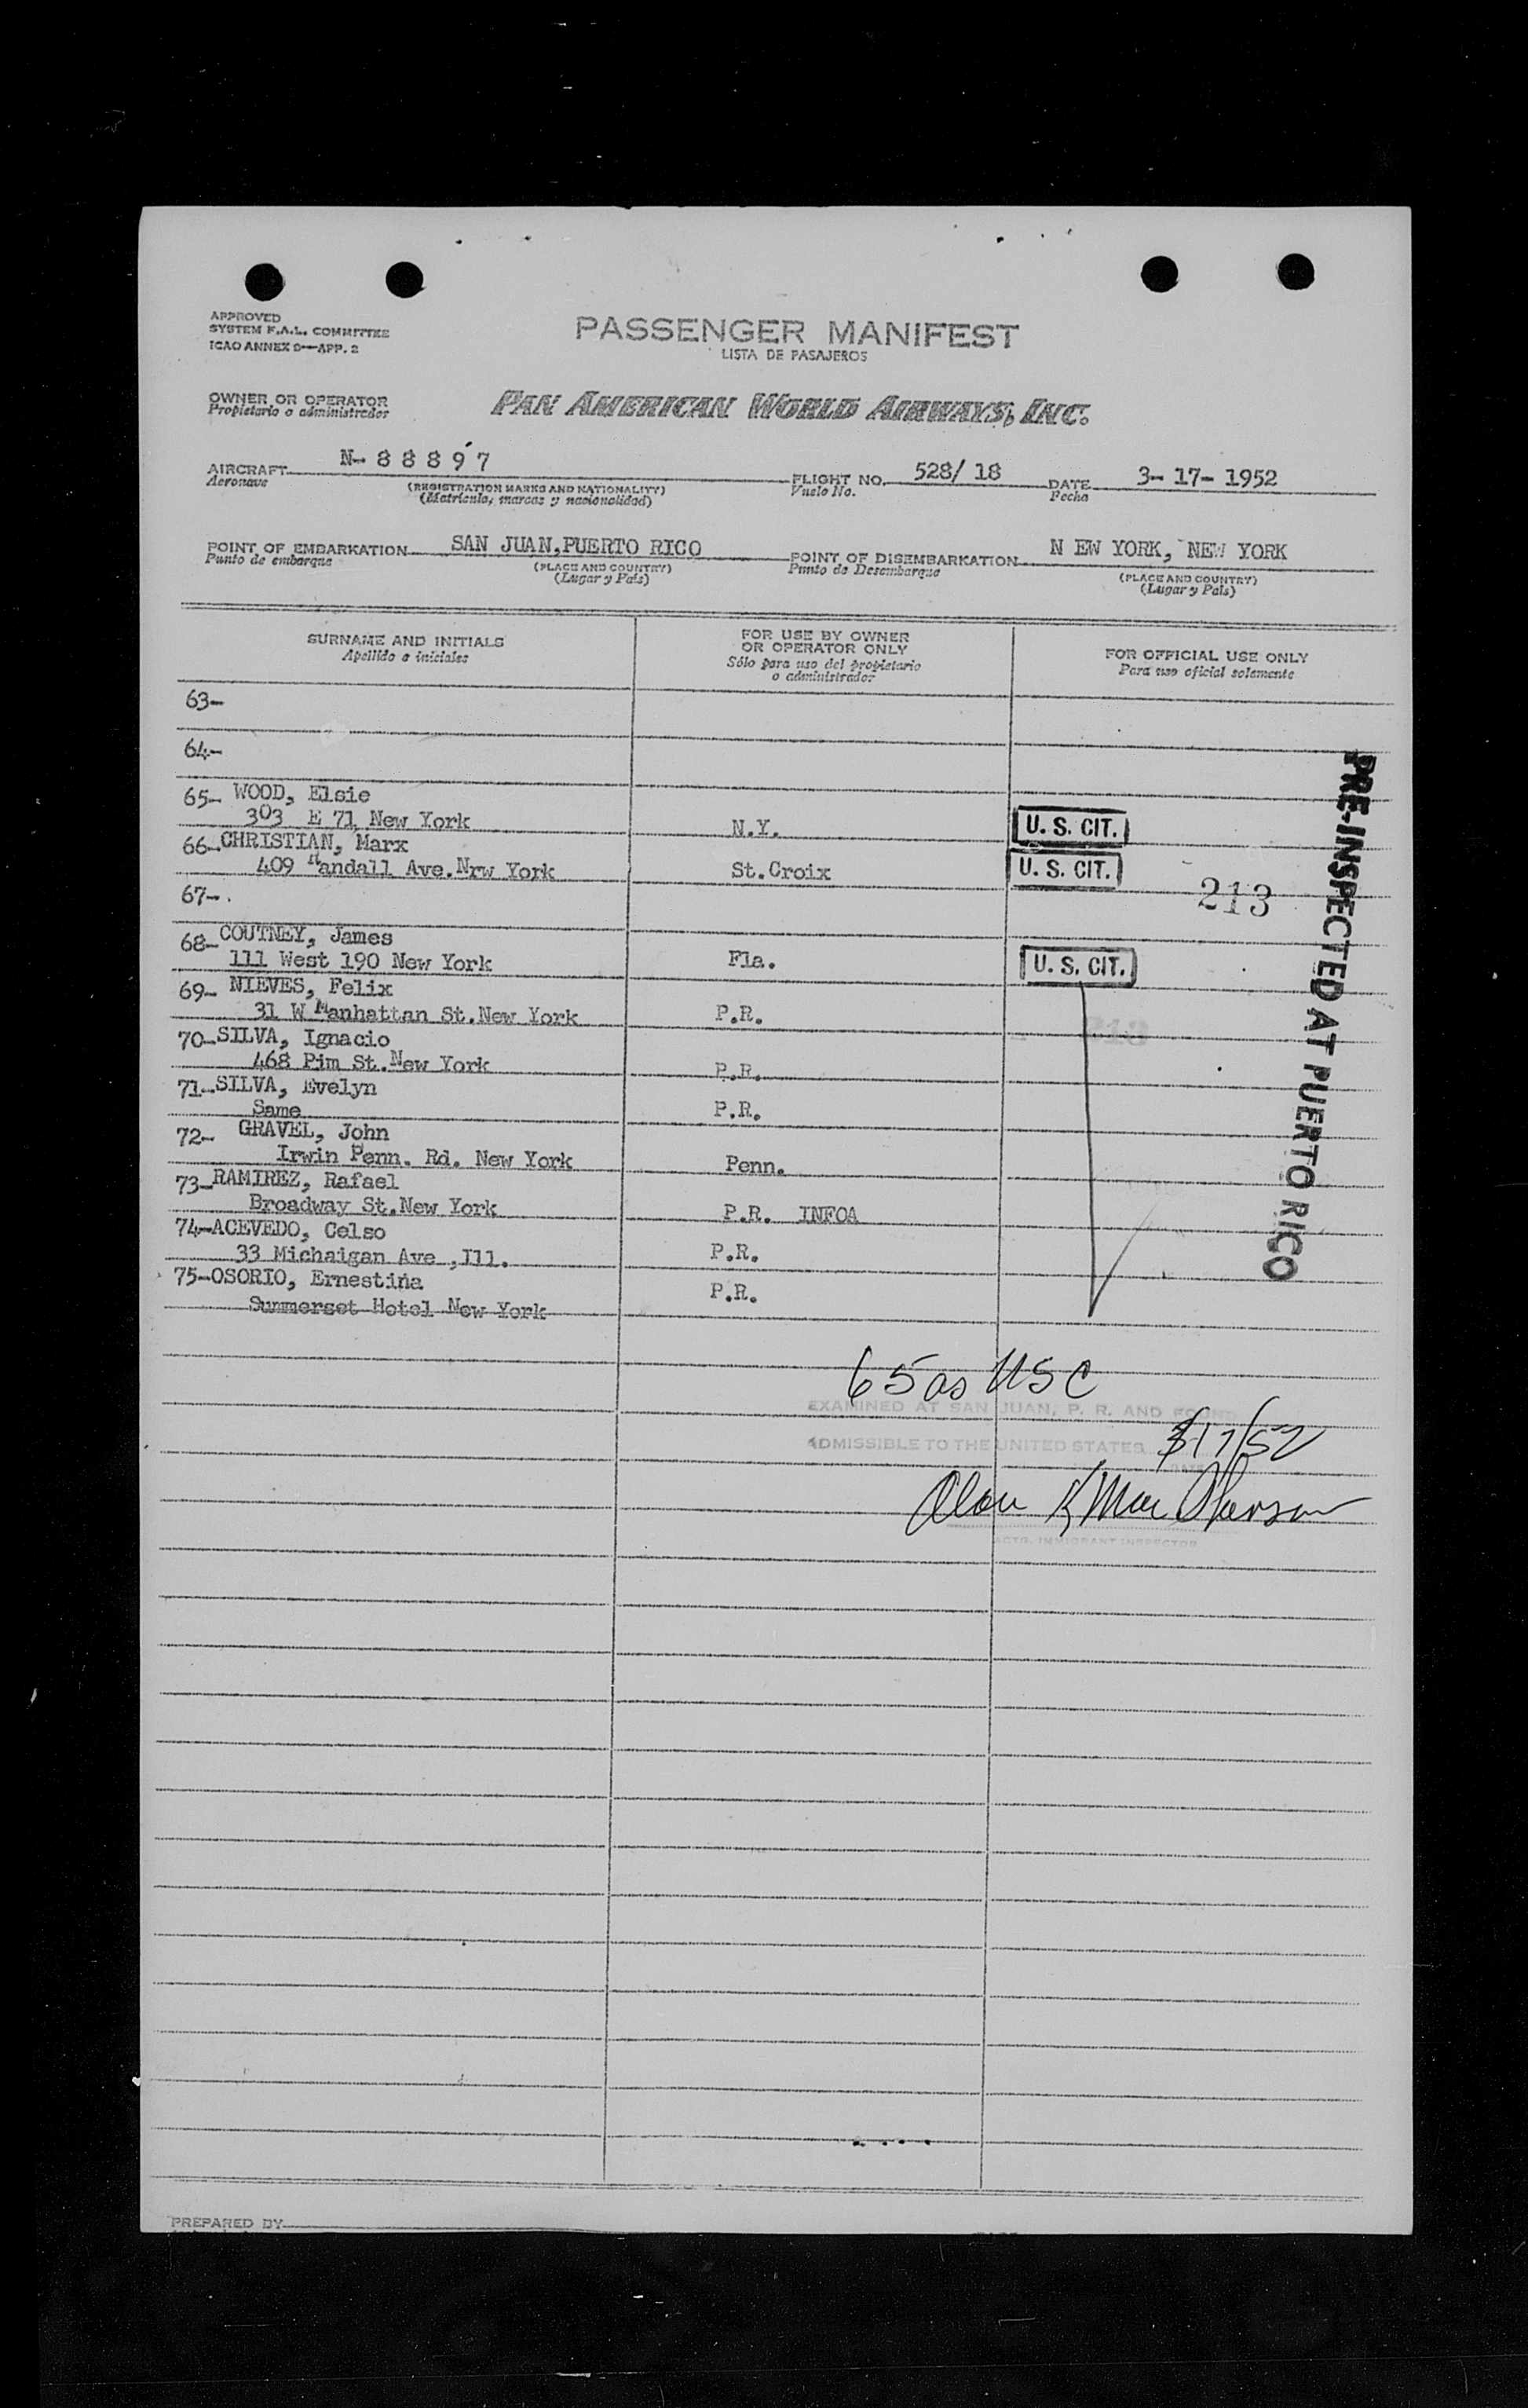 APPROVED
SYSTEM F.A.L. COMMITTEE
ICAO ANNEX 9—APP. 2
PASSENGER MANIFEST
LISTA DE PASAJEROS
OWNER OR OPERATOR
Propietario o administrador
PAN AMERICAN WORLD AIRWAYS, INC.
AIRCRAFT N- 8 8 8 9 7 FLIGHT NO. 528/ 18 DATE 3- 17- 1952
Aeronave (REGISTRATION MARKS AND NATIONALITY) Vuelo No. Fecha
(Matrícula, marcas y nacionalidad)
POINT OF EMBARKATION SAN JUAN,PUERTO RICO POINT OF DISEMBARKATION N EW YORK, NEW YORK
Punto de embarque (PLACE AND COUNTRY) Punto de Desembarque (PLACE AND COUNTRY)
(Lugar y País) (Lugar y País)
SURNAME AND INITIALS FOR USE BY OWNER OR OPERATOR ONLY FOR OFFICIAL USE ONLY
Apellido e iniciales Sólo para uso del propietario o administrador Para uso oficial solamente
63-
64-
65- WOOD, Elsie
303 E 71 New York N.Y. U. S. CIT.
66- CHRISTIAN, Marx
409 Randall Ave.Nrw York St.Croix U. S. CIT.
67- 213
68- COUTNEY, James
111 West 190 New York Fla. U. S. CIT.
69- NIEVES, Felix
31 W Manhattan St.New York P.R.
213
70- SILVA, Ignacio
468 Pim St.New York P.R.
71- SILVA, Evelyn
Same P.R.
72- GRAVEL, John
Irwin Penn. Rd. New York Penn.
73- RAMIREZ, Rafael
Broadway St.New York P.R. INFOA
74- ACEVEDO, Celso
33 Michaigan Ave ,Ill. P.R.
75- OSORIO, Ernestina
Summerset Hotel New York P.R.
PRE-INSPECTED AT PUERTO RICO
65 as USC
EXAMINED AT SAN JUAN, P. R. AND FOUND
ADMISSIBLE TO THE UNITED STATES 3/17/52
DATE
ACTG. IMMIGRANT INSPECTOR
PREPARED BY